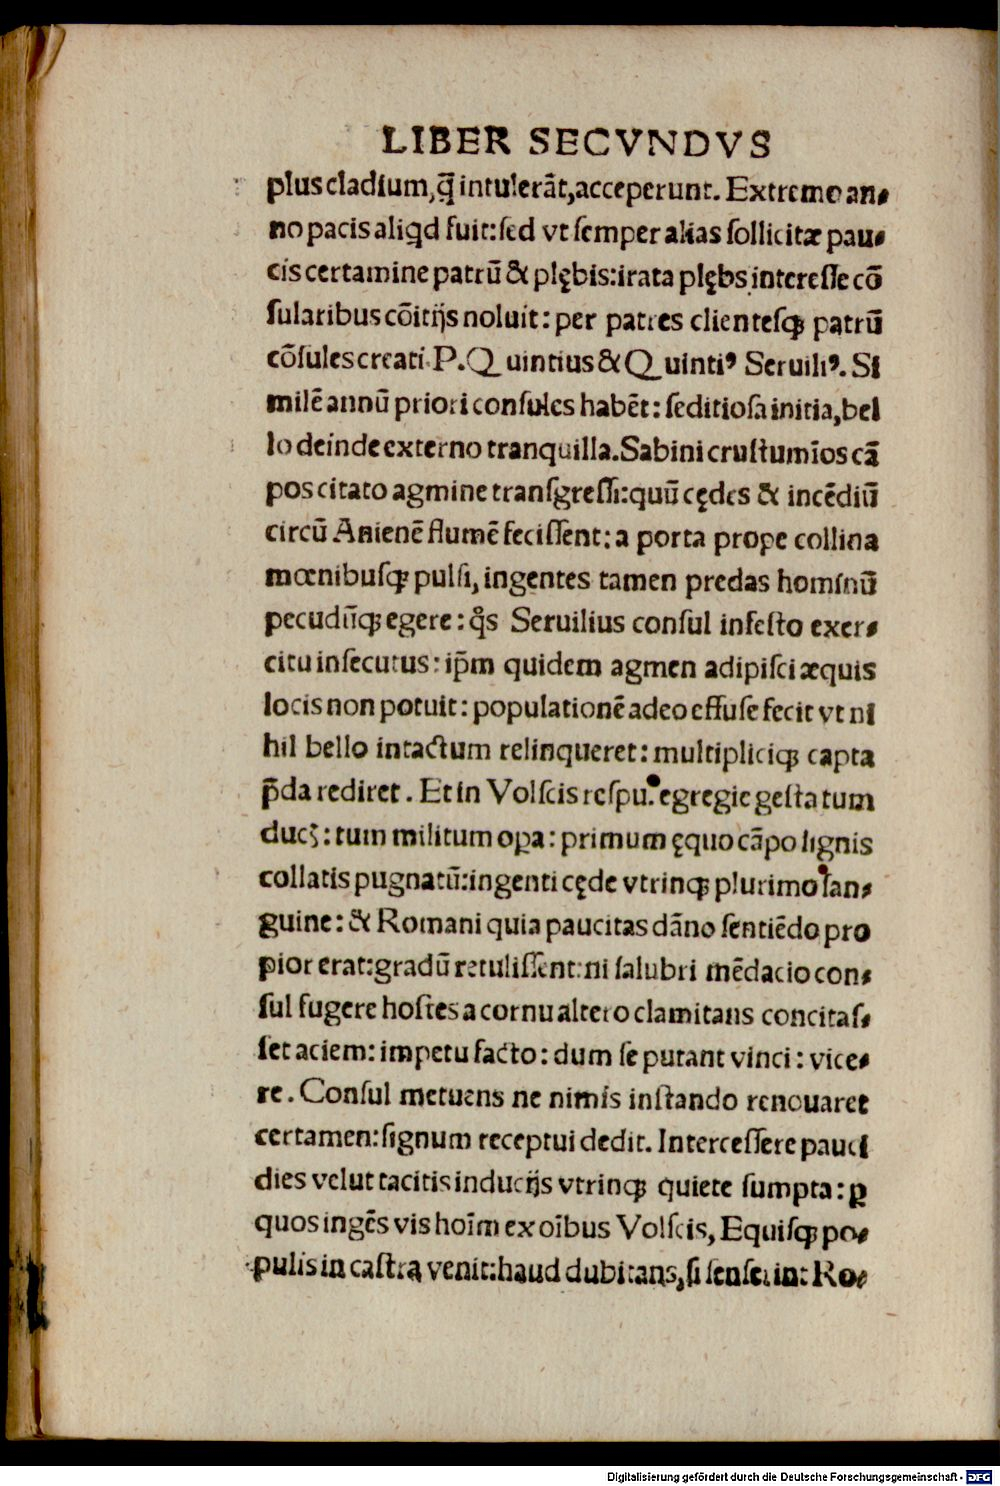 LIBER SECVNDVS
plus cladium, q̄ intulerāt, acceperunt. Extremo an⸗
no pacis aliqd fuit: sed vt semper alias sollicitæ pau⸗
cis certamine patrū & plębis: irata plębs interesse cō
sularibus cōitijs noluit: per patres clientesqꝫ patrū
cōsules creati P. Quintius & Quintiꝰ Seruiliꝰ. Si
milē annū priori consules habēt: seditiosa initia, bel
lo deinde externo tranquilla. Sabini crustumīos cā
pos citato agmine transgressi: quū cędes & incēdiū
circū Anienē flumē fecissent: a porta prope collina
mœnibusqꝫ pulsi, ingentes tamen predas hominū
pecudūqꝫ egere: qͦs Seruilius consul infesto exer⸗
citu insecutus: ip̄m quidem agmen adipisci æquis
locis non potuit: populationē adeo effuse fecit vt ni
hil bello intactum relinqueret: multipliciqꝫ capta
p̄da rediret. Et in Volscis respu. egregie gesta tum
ducꝫ: tum militum oꝑa: primum ęquo cāpo signis
collatis pugnatū: ingenti cęde vtrinqꝫ plurimo san⸗
guine: & Romani quia paucitas dāno sentiēdo pro
pior erat: gradū retulissent: ni salubri mēdacio con⸗
sul fugere hostes a cornu altero clamitans concitas⸗
set aciem: impetu facto: dum se putant vinci: vice⸗
re. Consul metuens ne nimis instando renouaret
certamen: signum receptui dedit. Intercessere pauci
dies velut tacitis inducijs vtrinqꝫ quiete sumpta: ꝑ
quos ingēs vis hoīm ex oībus Volscis, Equisqꝫ po⸗
pulis in castra venit: haud dubitans, si senserint Ro⸗
Digitalisierung gefördert durch die Deutsche Forschungsgemeinschaft - DFG